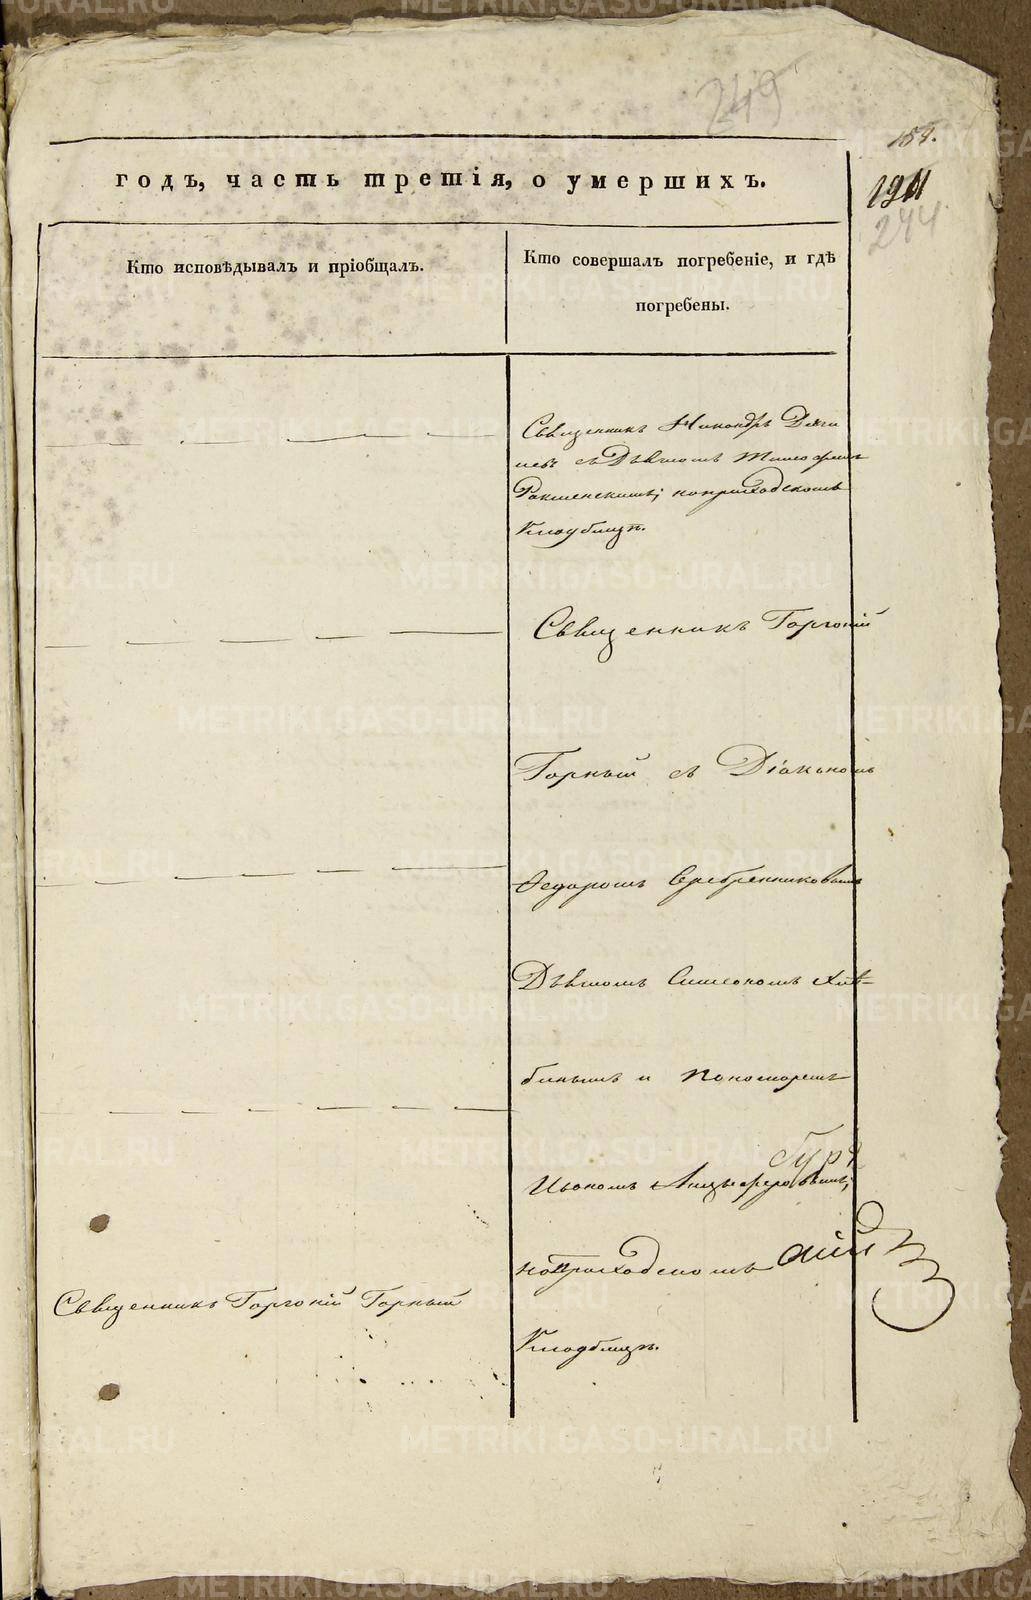 249
154.
годъ, часть третія, о умершихъ.
244
Кто исповѣдывалъ и пріобщалъ.
Кто совершалъ погребеніе, и гдѣ
погребены.
Священникъ Никандръ
съ Дьячкомъ Тимофеемъ
наприходскомъ
Кладбищѣ.
Священникъ Горгоній
Горный съ Діакономъ
Федоромъ Серебренниковымъ
Дьячкомъ Симеономъ Хлѣ-
бинымъ и Пономаремъ
наприходскомъ
Священникъ Горгоній Горный
Кладбищѣ.
METRIKI.GASO-URAL.RU